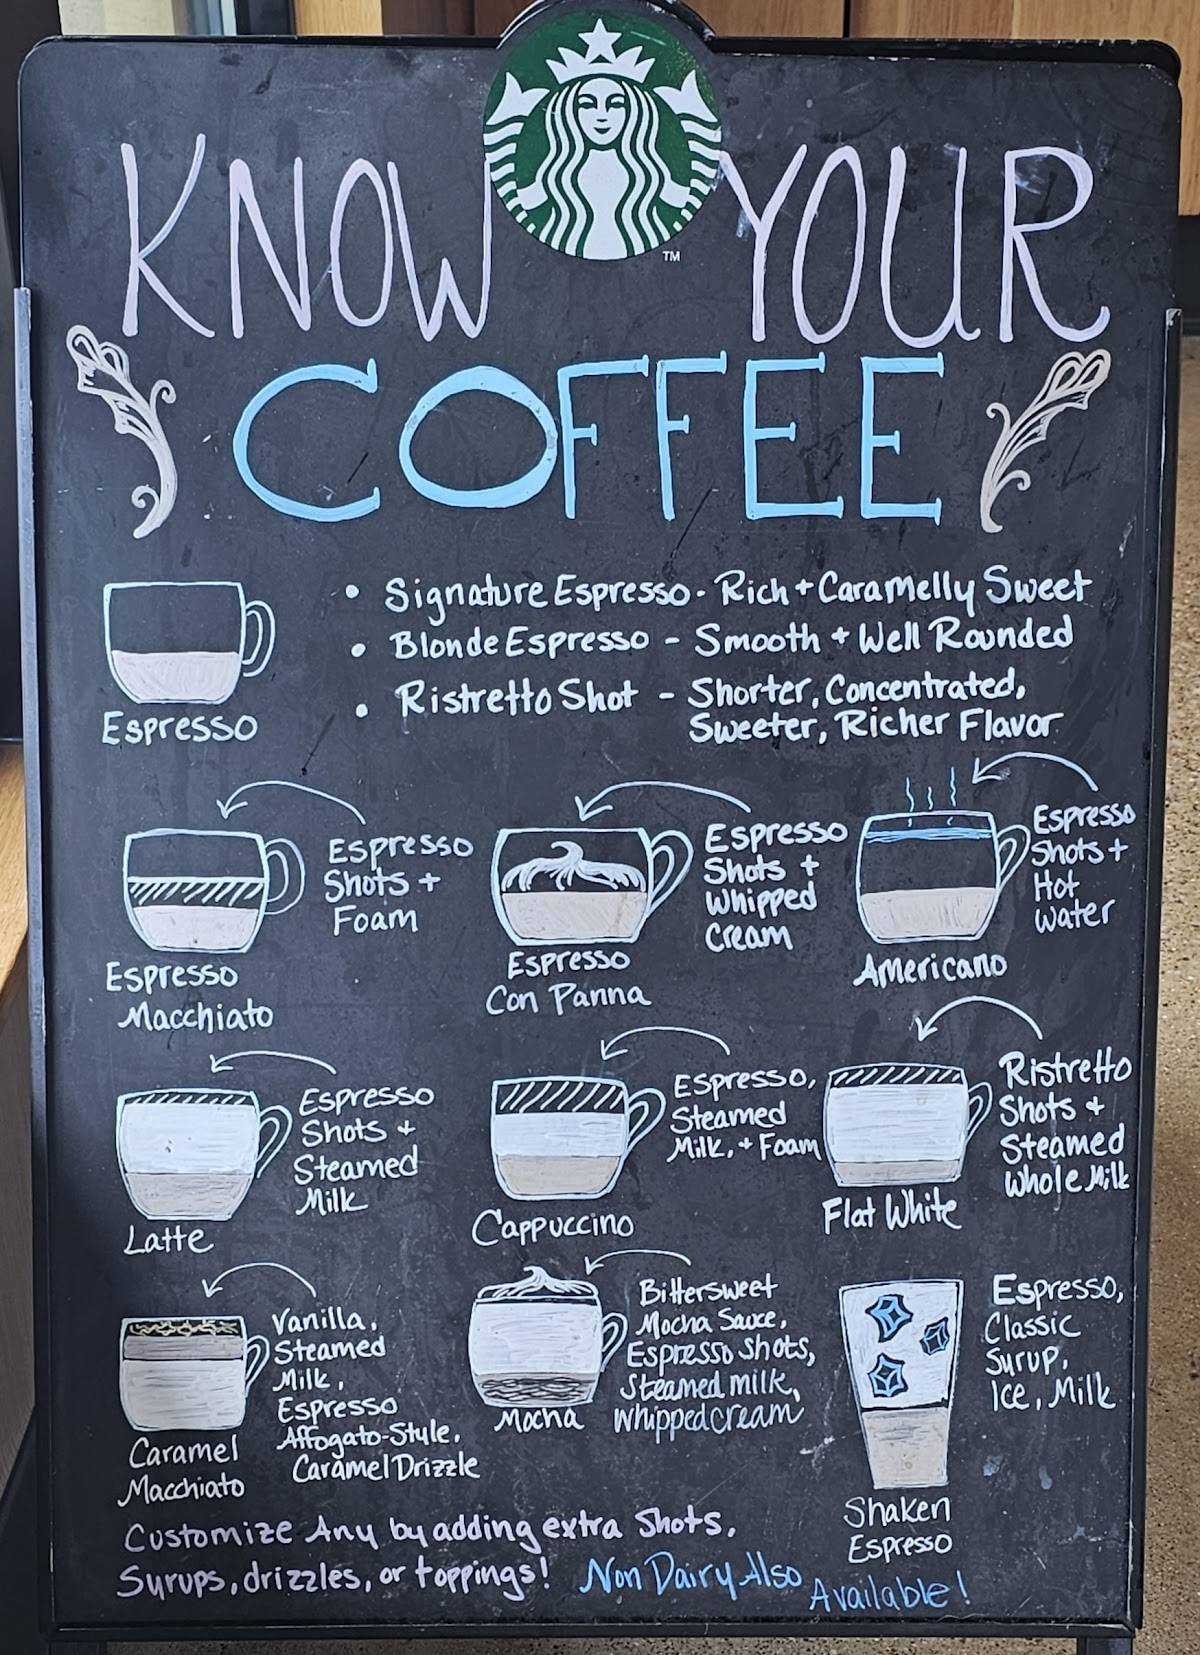 KNOW YOUR
TM
COFFEE
• Signature Espresso - Rich + Caramelly Sweet
• Blonde Espresso - Smooth + Well Rounded
• Ristretto Shot - Shorter, Concentrated,
Sweeter, Richer Flavor
Espresso
Espresso
Shots +
Foam
Espresso
Macchiato
Espresso
Shots +
Whipped
Cream
Espresso
Con Panna
Espresso
Shots +
Hot
Water
Americano
Espresso
Shots +
Steamed
Milk
Latte
Espresso,
Steamed
Milk, + Foam
Cappuccino
Ristretto
Shots +
Steamed
Whole Milk
Flat White
Vanilla,
Steamed
Milk,
Espresso
Affogato-Style,
Caramel Drizzle
Caramel
Macchiato
Bittersweet
Mocha Sauce,
Espresso shots,
Steamed milk,
Whipped cream
Mocha
Espresso,
Classic
Syrup,
Ice, Milk
Shaken
Espresso
Customize Any by adding extra Shots,
Syrups, drizzles, or toppings! Non Dairy Also Available!